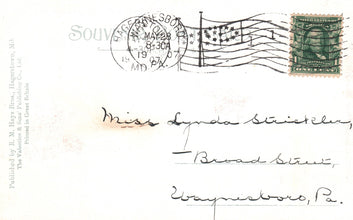 Souv
HAGERSTOWN
WAYNESBORO
MAY 28
8-30A
19 07
MD.
PA.
1
Miss Lynda Strickler,
Broad Street,
Waynesboro, Pa.
Published by R. M. Hays Bros., Hagerstown, Md.
The Valentine & Sons' Publishing Co., Ltd.
Printed in Great Britain